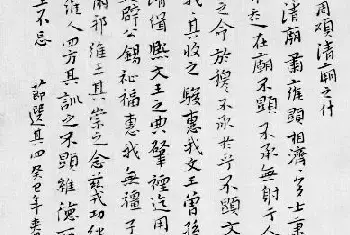 周頌清廟之什
清廟肅雝顯相濟多士秉
在廟不顯不承無射于人
之命於穆不承於乎不顯文
我其收之駿惠我文王曾孫
清緝熙文王之典肇禋迄用
辟公錫祉福惠我無疆子
爾邦維王其崇之念茲戎功
維人四方其訓之不顯維德
不忘 節選其四癸巳年春